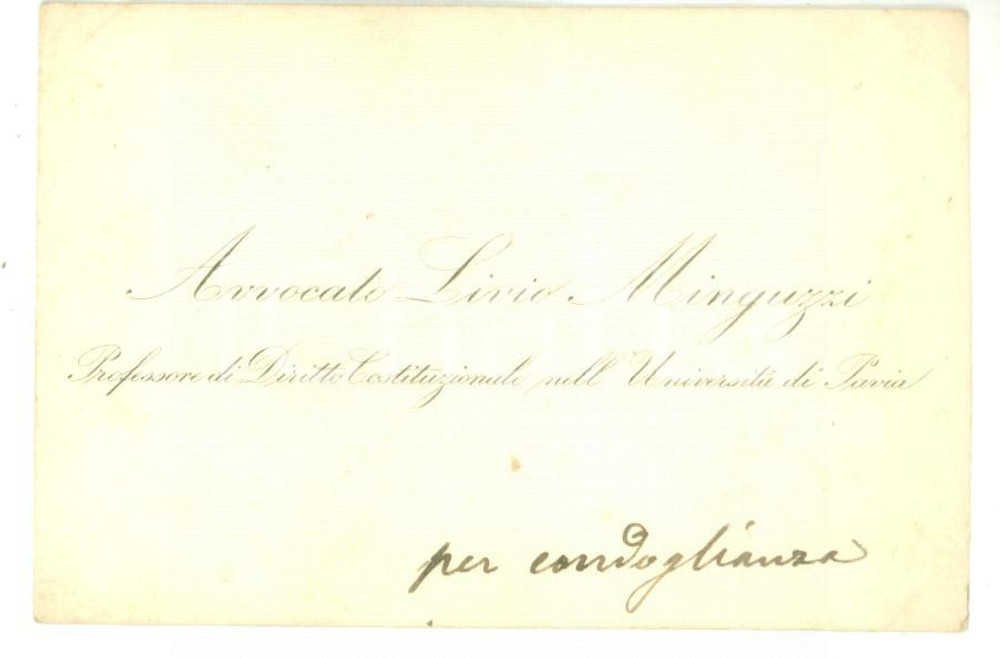 Avvocato Livio Minguzzi
Professore di Diritto Costituzionale nell'Università di Pavia
per condoglianza